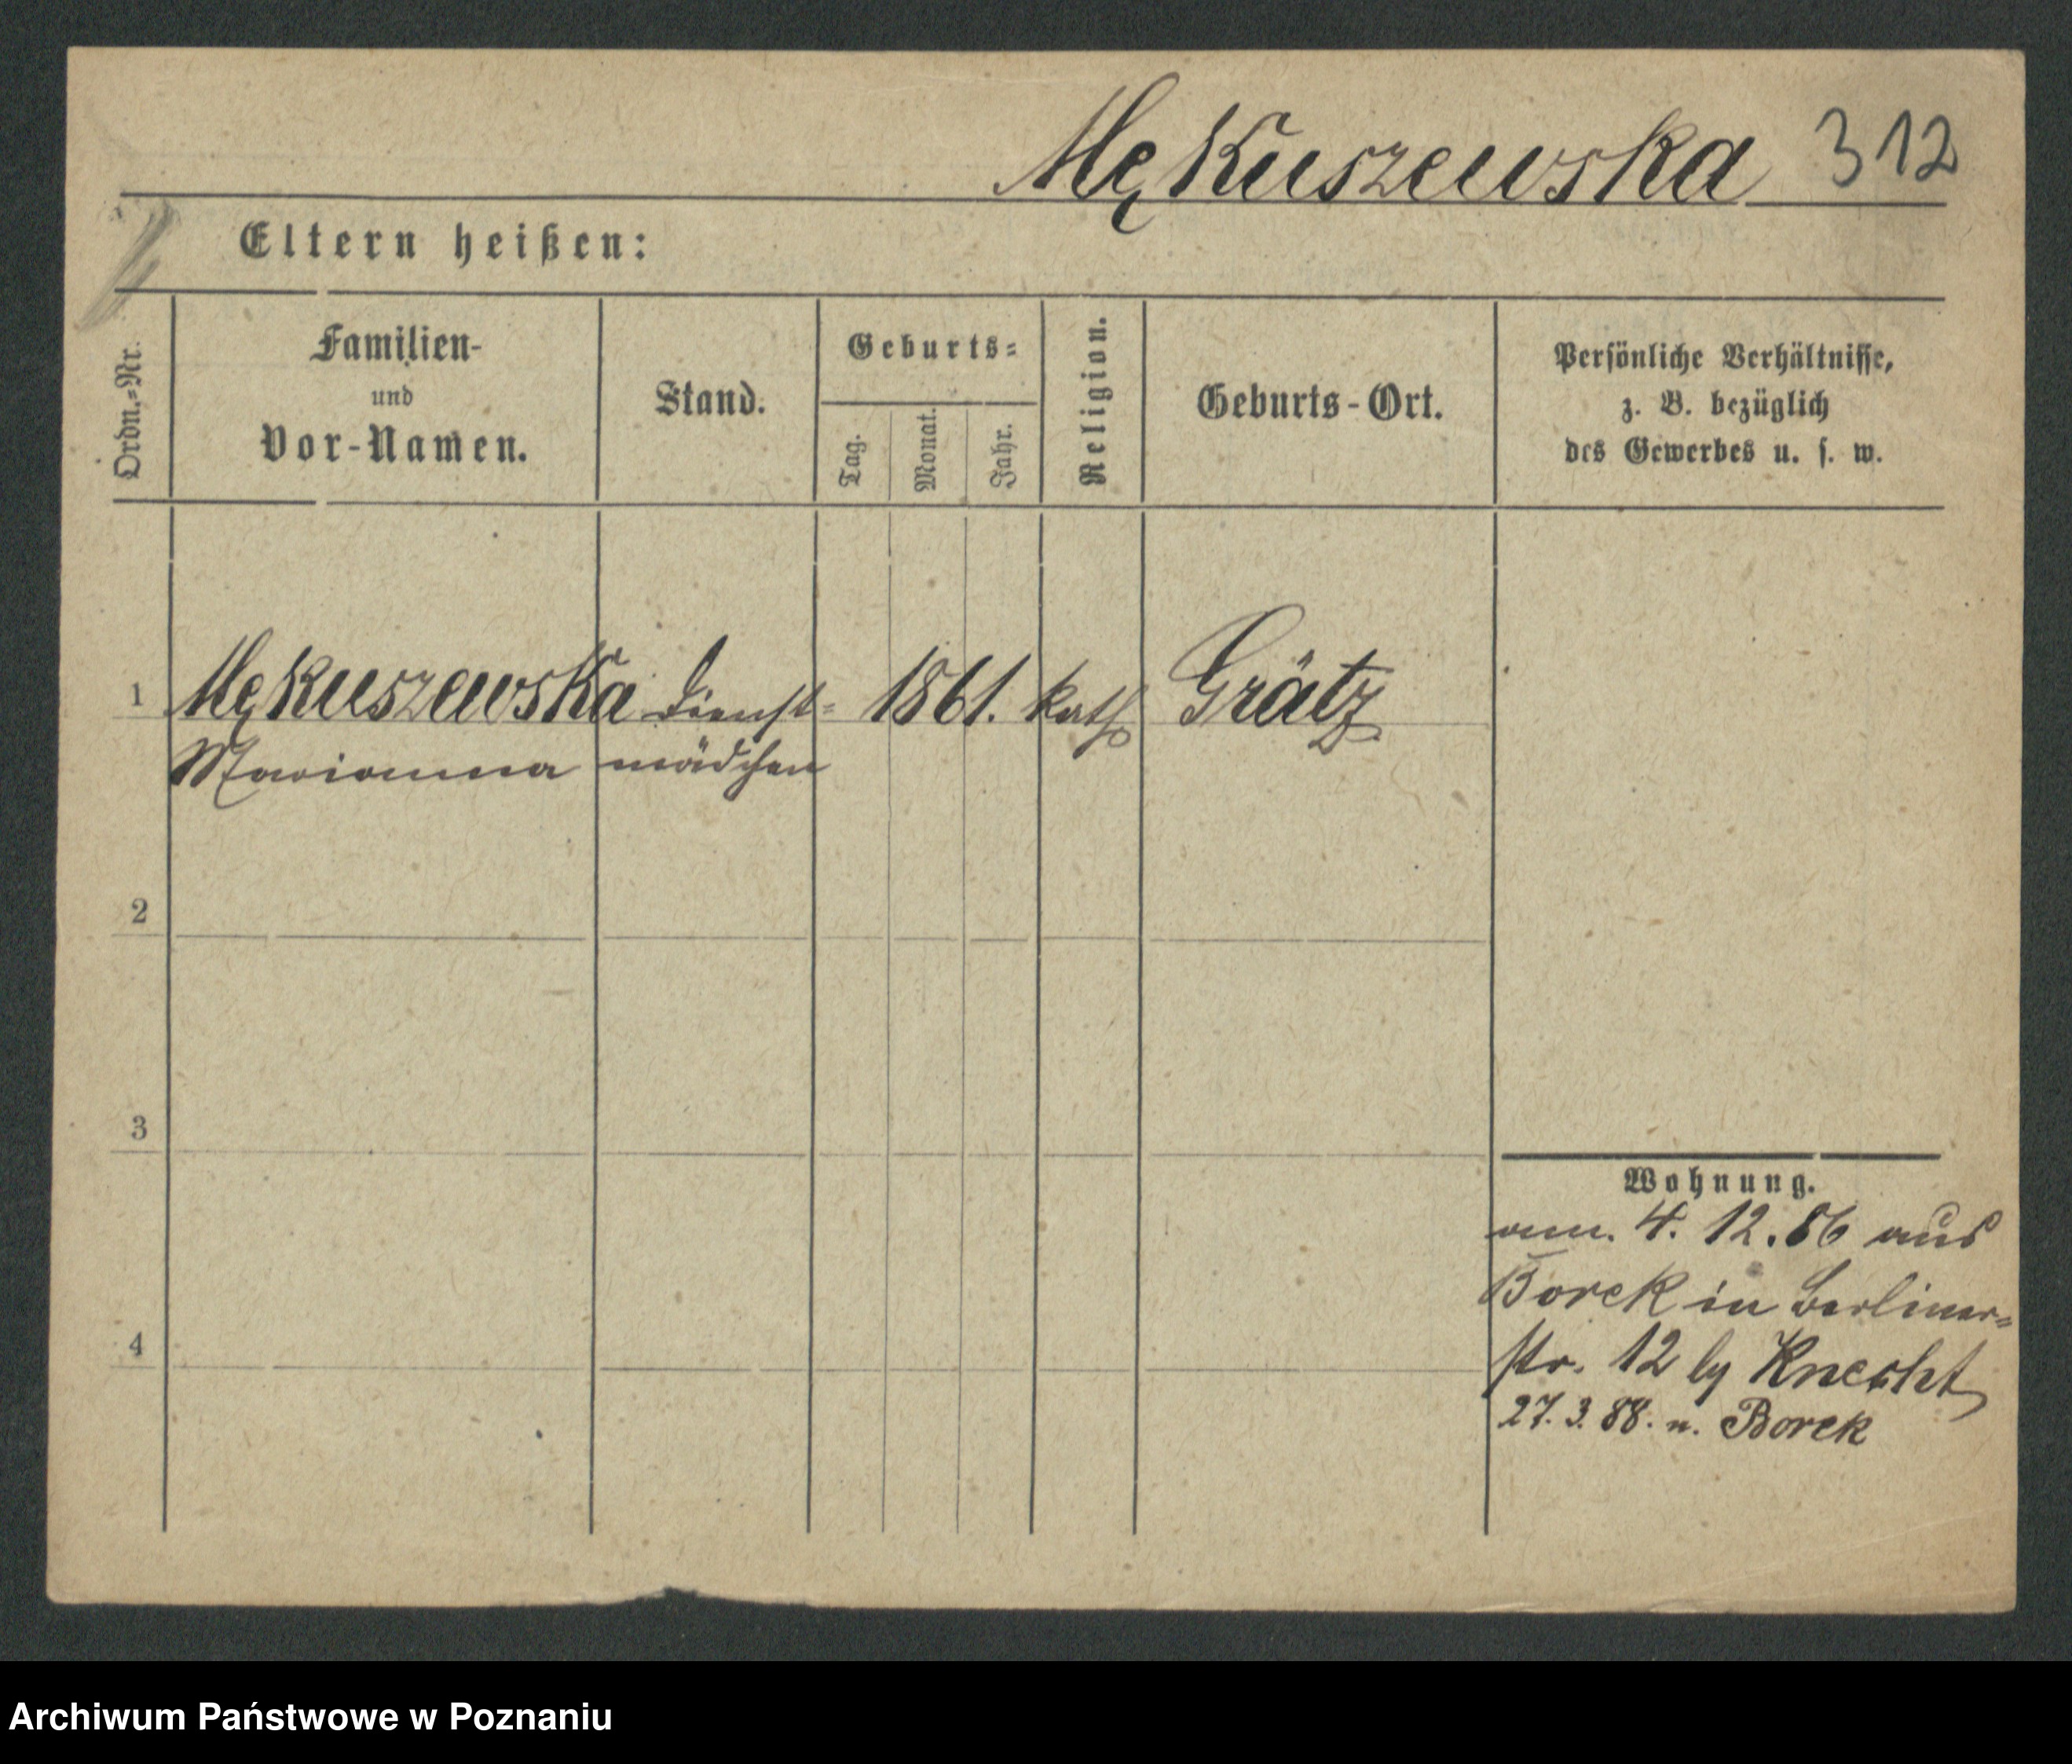 Mękuszewska 312
Eltern heißen:
Ordn.-Nr.
Familien-
und
Vor-Namen.
Stand.
Geburts-
Tag.
Monat.
Jahr.
Religion.
Geburts-Ort.
Persönliche Verhältnisse,
z. B. bezüglich
des Gewerbes u. s. w.
1 Mękuszewska Dienst- 1861. kath Grätz
Marianna mädchen
2
3
4
Wohnung.
am. 4. 12. 86 aus
Borek in Berliner-
str. 12 by Knecht
27. 3. 88. n. Borek
Archiwum Państwowe w Poznaniu